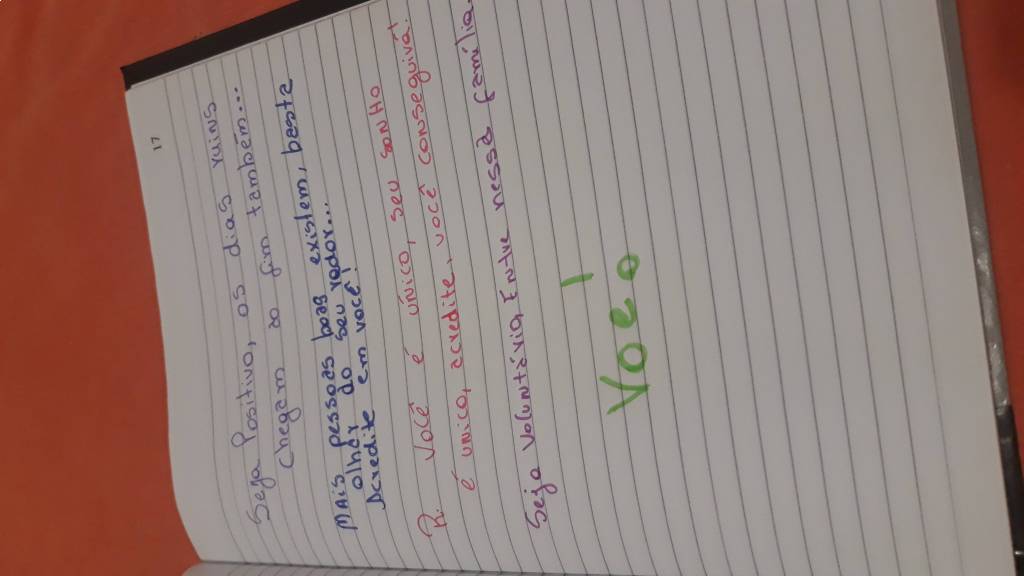 17
Seja Positivo, os dias ruins
chegam ao fim também...
Mais pessoas boas existem, basta
olhar do seu redor...
Acredite em você!
R. Você é único, seu sonho
é unico, acredite, você conseguirá!
Seja Voluntária Entre nessa família.
Voe!